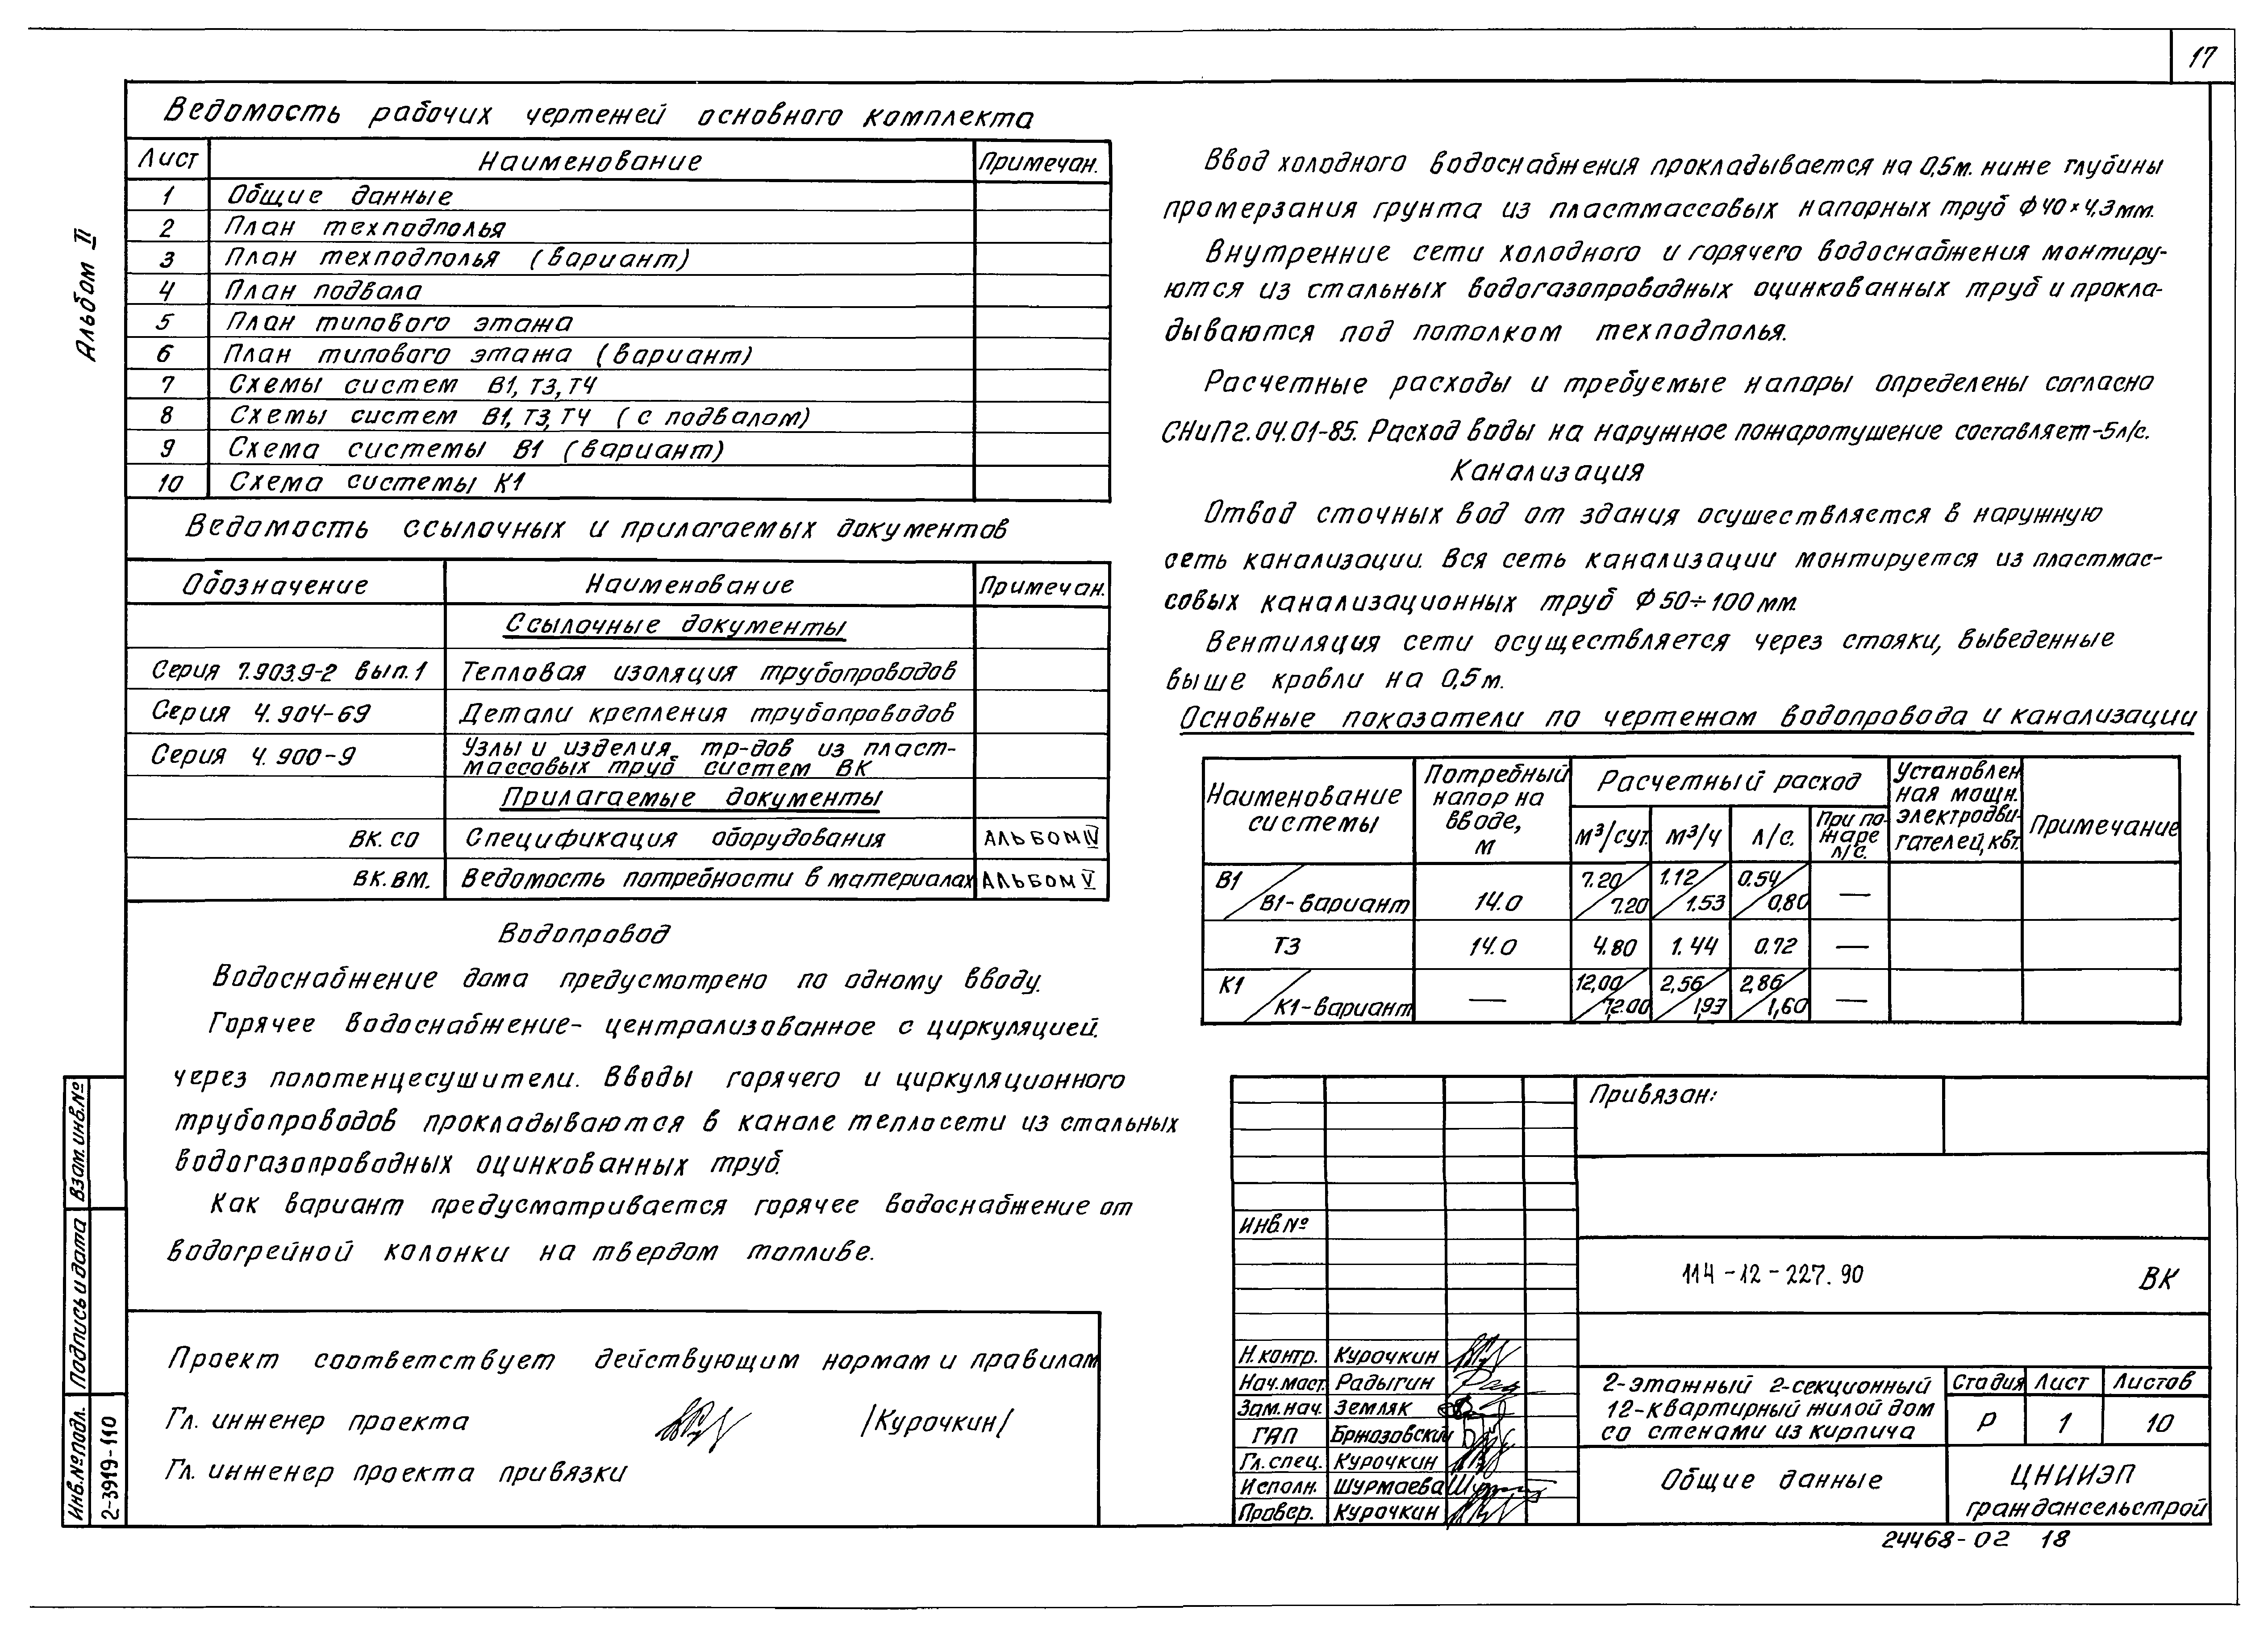 17
Альбом II
Ведомость рабочих чертежей основного комплекта
Лист Наименование Примечан.
1 Общие данные
2 План техподполья
3 План техподполья (вариант)
4 План подвала
5 План типового этажа
6 План типового этажа (вариант)
7 Схемы систем В1, Т3, Т4
8 Схемы систем В1, Т3, Т4 (с подвалом)
9 Схема системы В1 (вариант)
10 Схема системы К1
Ведомость ссылочных и прилагаемых документов
Обозначение Наименование Примечан.
Ссылочные документы
Серия 7.903.9-2 вып. 1 Тепловая изоляция трубопроводов
Серия 4.904-69 Детали крепления трубопроводов
Серия 4.900-9 Узлы и изделия тр-дов из пласт-
массовых труб систем ВК
Прилагаемые документы
ВК. СО Спецификация оборудования АЛЬБОМ IV
ВК. ВМ. Ведомость потребности в материалах АЛЬБОМ V
Водопровод
Водоснабжение дома предусмотрено по одному вводу.
Горячее водоснабжение - централизованное с циркуляцией.
через полотенцесушители. Вводы горячего и циркуляционного
трубопроводов прокладываются в канале теплосети из стальных
водогазопроводных оцинкованных труб.
Как вариант предусматривается горячее водоснабжение от
водогрейной колонки на твердом топливе.
Проект соответствует действующим нормам и правилам
Гл. инженер проекта /Курочкин/
Гл. инженер проекта привязки
Взам. инв. №
Подпись и дата
Инв. № подл.
2-3919-110
Ввод холодного водоснабжения прокладывается на 0,5м. ниже глубины
промерзания грунта из пластмассовых напорных труб Ф 40 × 4,3 мм.
Внутренние сети холодного и горячего водоснабжения монтиру-
ются из стальных водогазопроводных оцинкованных труб и прокла-
дываются под потолком техподполья.
Расчетные расходы и требуемые напоры определены согласно
СНиП 2.04.01-85. Расход воды на наружное пожаротушение составляет-5л/с.
Канализация
Отвод сточных вод от здания осушествляется в наружную
сеть канализации. Вся сеть канализации монтируется из пластмас-
совых канализационных труб Ф 50÷100 мм.
Вентиляция сети осуществляется через стояки, выведенные
выше кровли на 0,5 м.
Основные показатели по чертежам водопровода и канализации
Наименование системы Потребный напор на вводе, м Расчетный расход Установлен ная мощн. электродви- гателей, квт. Примечание
м³/сут. м³/ч л/с. При по- жаре л/с.
В1 / В1-вариант 14.0 7.20 / 7.20 1.12 / 1.53 0.54 / 0,80 —
Т3 14.0 4.80 1.44 0.72 —
К1 / К1-вариант — 12,00 / 12.00 2,56 / 1,93 2,86 / 1,60 —
Привязан:
Инв. №
114-12-227.90 ВК
Н. контр. Курочкин
Нач. маст. Радыгин
Зам. нач. Земляк
ГАП Бржозовский
Гл. спец. Курочкин
Исполн. Шурмаева
Провер. Курочкин
2-этажный 2-секционный
12-квартирный жилой дом
со стенами из кирпича
Стадия Лист Листов
Р 1 10
Общие данные
ЦНИИЭП
граждансельстрой
24468-02 18